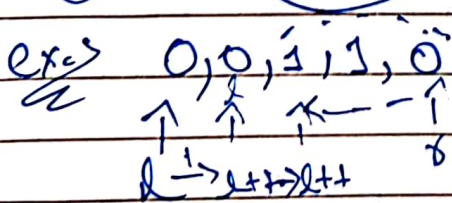 ex:→ 0, 0, 1, 1, 0
r
l → l++ → l++